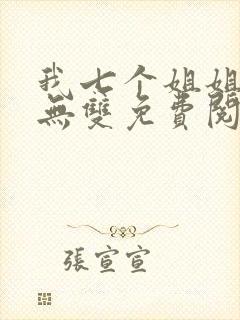 我七个姐姐
無雙免費閱
張宣宣